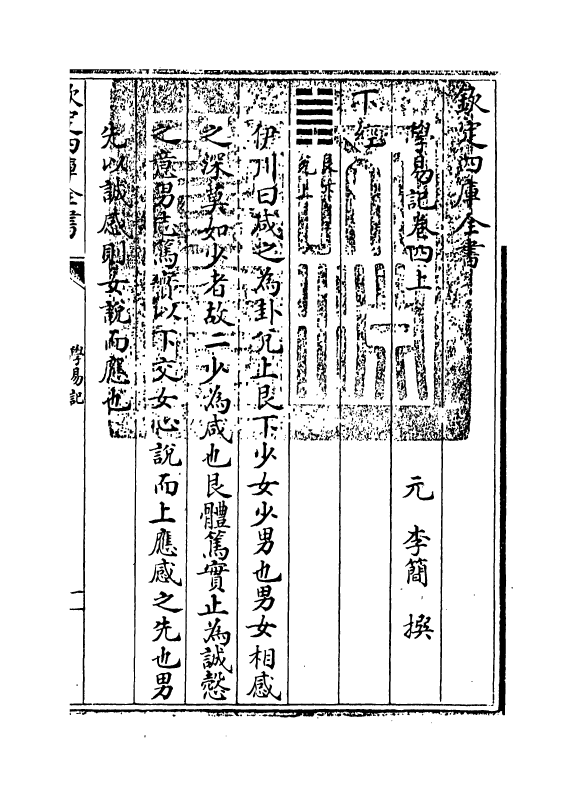 欽定四庫全書
學易記卷四上
元 李簡 撰
下經
艮下
兌上
伊川曰咸之為卦兊上艮下少女少男也男女相感
之深莫如少者故二少為咸也艮體篤實止為誠慤
之意男志篤實以下交女心說而上應感之先也男
先以誠感則女說而應也
欽定四庫全書
學易記
一